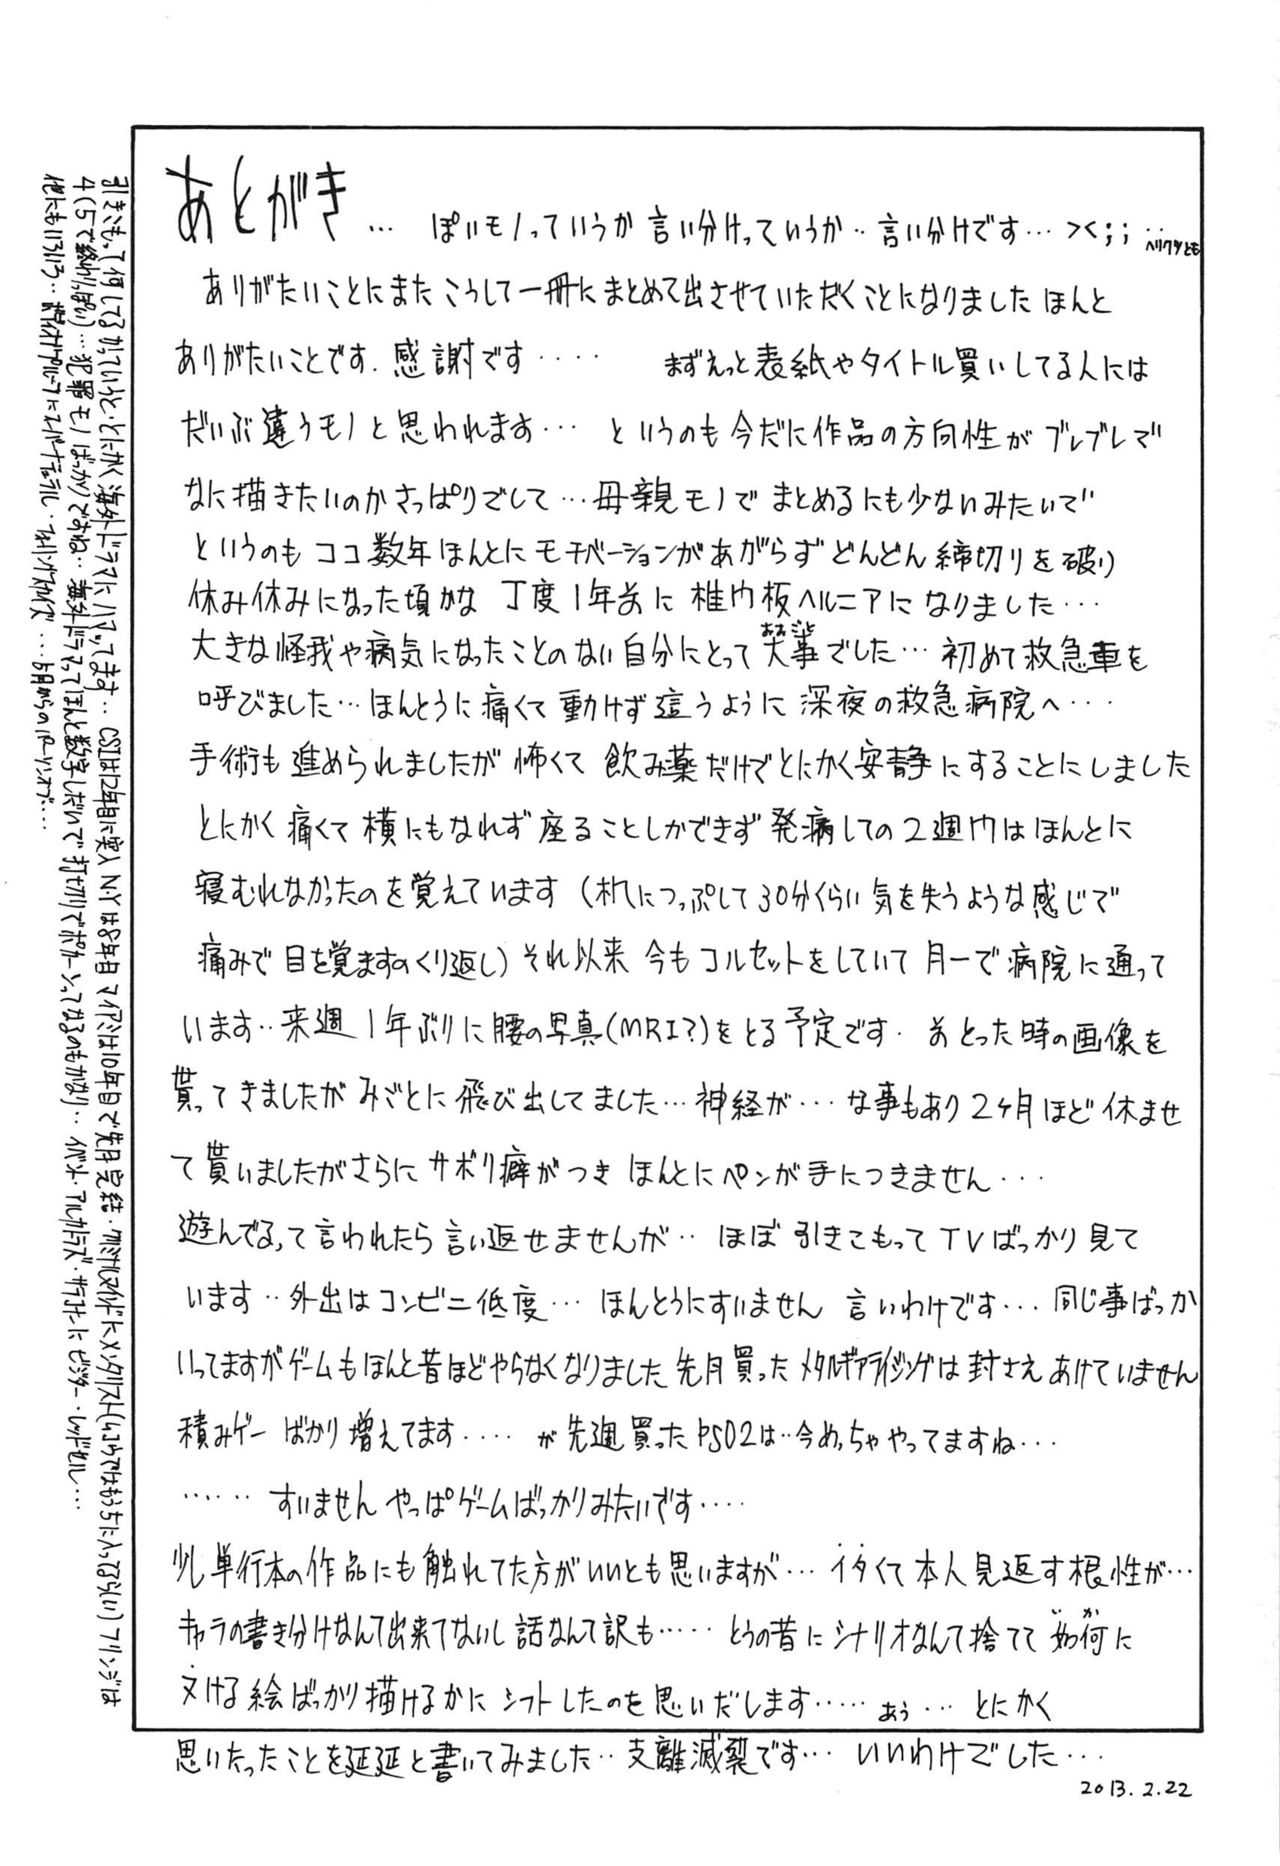 あとがき… ぽいモノっていうか 言い分けっていうか‥ 言い分けです… ><;; ‥
ヘリクツとも
ありがたいことにまた こうして一冊に まとめて出させていただくことになりました ほんと
ありがたいことです. 感謝です‥‥ まずえっと表紙やタイトル買いしてる人には
だいぶ違うモノと思われます… というのも今だに作品の方向性が ブレブレで
なに描きたいのか さっぱりでして… 母親モノで まとめるにも少ないみたいで
というのも ココ数年ほんとに モチベーションがあがらず どんどん 締切りを破り
休み休みになった頃かな 丁度1年前に 椎内板ヘルニアになりました…
大きな怪我や病気になったことのない自分にとって大事でした… 初めて救急車を
おおごと
呼びました… ほんとうに痛くて動けず這うように深夜の救急病院へ…
手術も進められましたが怖くて 飲み薬だけでとにかく安静にすることにしました
とにかく痛くて横にもなれず座ることしかできず 発病しての2週間はほんとに
寝むれなかったのを覚えています (机につっぷして30分くらい気を失うような感じで
痛みで目を覚ますのくり返し) それ以来 今もコルセットをしていて 月一で病院に通って
います‥ 来週1年ぶりに腰の写真(MRI?)をとる予定です. 前とった時の画像を
貰ってきましたが みごとに飛び出してました… 神経が… な事もあり2ヶ月ほど休ませ
て貰いましたがさらに サボリ癖がつき ほんとにペンが手につきません…
遊んでるって言われたら言い返せませんが‥ ほぼ引きこもってTVばっかり見て
います‥ 外出はコンビニ低度… ほんとうにすいません 言いわけです… 同じ事ばっか
いってますがゲームもほんと昔ほどやらなくなりました 先月買ったメタルギアライジングは封さえあけていません
積みゲーばかり増えてます‥‥ が先週買ったPSO2は‥今めっちゃやってますね…
‥‥‥ すいません やっぱゲームばっかりみたいです‥‥
少し単行本の作品にも触れてた方がいいとも思いますが… イタくて本人見返す根性が…
キャラの書き分けなんて出来てないし 話なんて訳も‥‥‥ とうの昔に シナリオなんて捨てて 如何に
いか
ヌける絵ばっかり描けるかに シフトしたのを思いだします‥‥‥ ぁぅ… とにかく
思いたったことを延延と書いてみました‥ 支離滅裂です… いいわけでした…
2013.2.22
引きこもって何してるかっていうと、とにかく海外ドラマにハマってます‥ CSIは12年目に突入 NYは8年目 マイアミは10年目で先月完結・クリミナルマインドにメンタリスト(ムコウではもう5に入ってるらしい) フリンジは
4(5で終わりっぽい)… 犯罪モノばっかりですね‥ 海外ドラマってほんと数字しだいで打ち切りでポカーンってなるのもかなり‥ イベント・アルカトラズ・サラコナーにビジター・レッドセル…
他にもいろいろ‥ ボディオブプルーフにスーパーナチュラル・フォーリングスカイズ… 5月からのパーソンオブ…